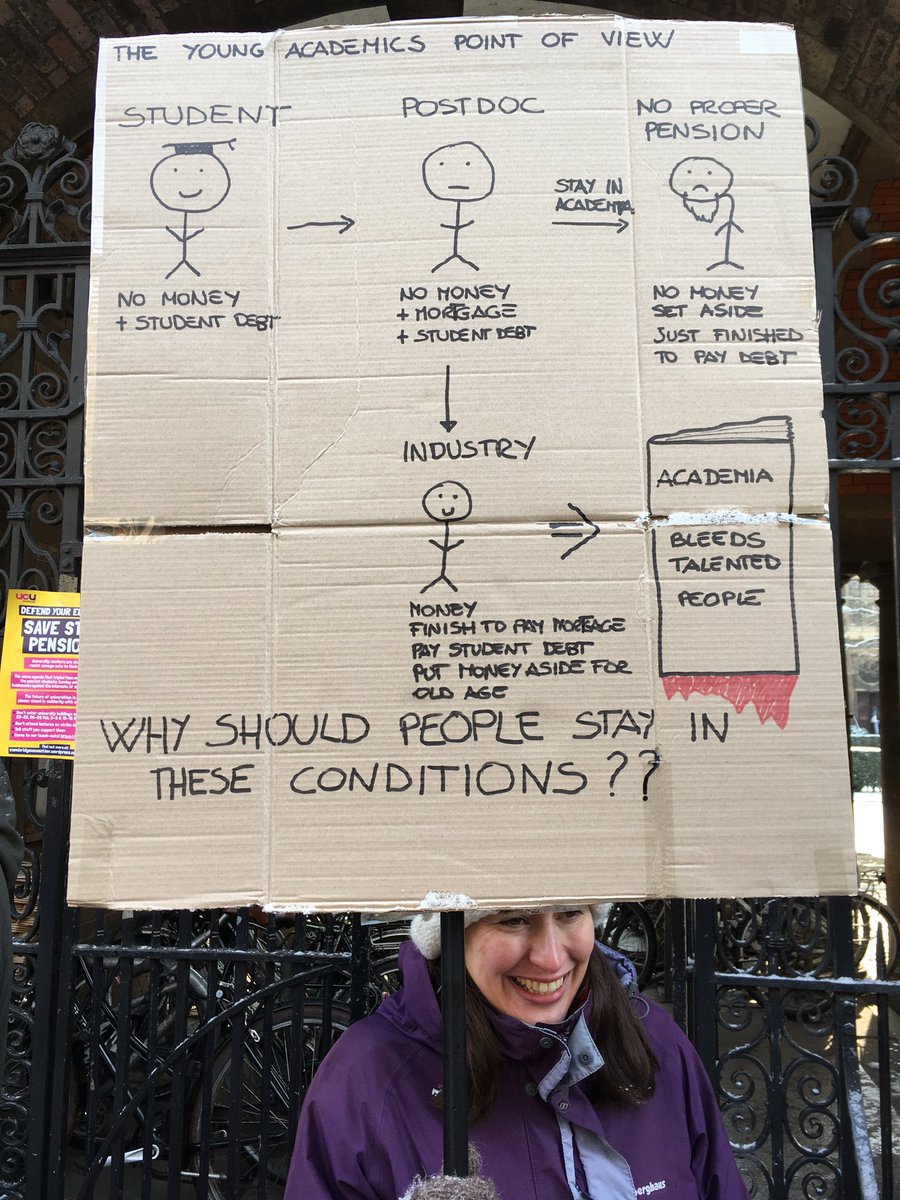 THE YOUNG ACADEMICS POINT OF VIEW
STUDENT
NO MONEY
+ STUDENT DEBT
POSTDOC
NO MONEY
+ MORTGAGE
+ STUDENT DEBT
STAY IN
ACADEMIA
NO PROPER
PENSION
NO MONEY
SET ASIDE
JUST FINISHED
TO PAY DEBT
INDUSTRY
MONEY
FINISH TO PAY MORTGAGE
PAY STUDENT DEBT
PUT MONEY ASIDE FOR
OLD AGE
ACADEMIA
BLEEDS
TALENTED
PEOPLE
WHY SHOULD PEOPLE STAY IN
THESE CONDITIONS ??
ucu
DEFEND YOUR
SAVE
PENSION
University workers are
The future of universities
Find out more at
berghaus